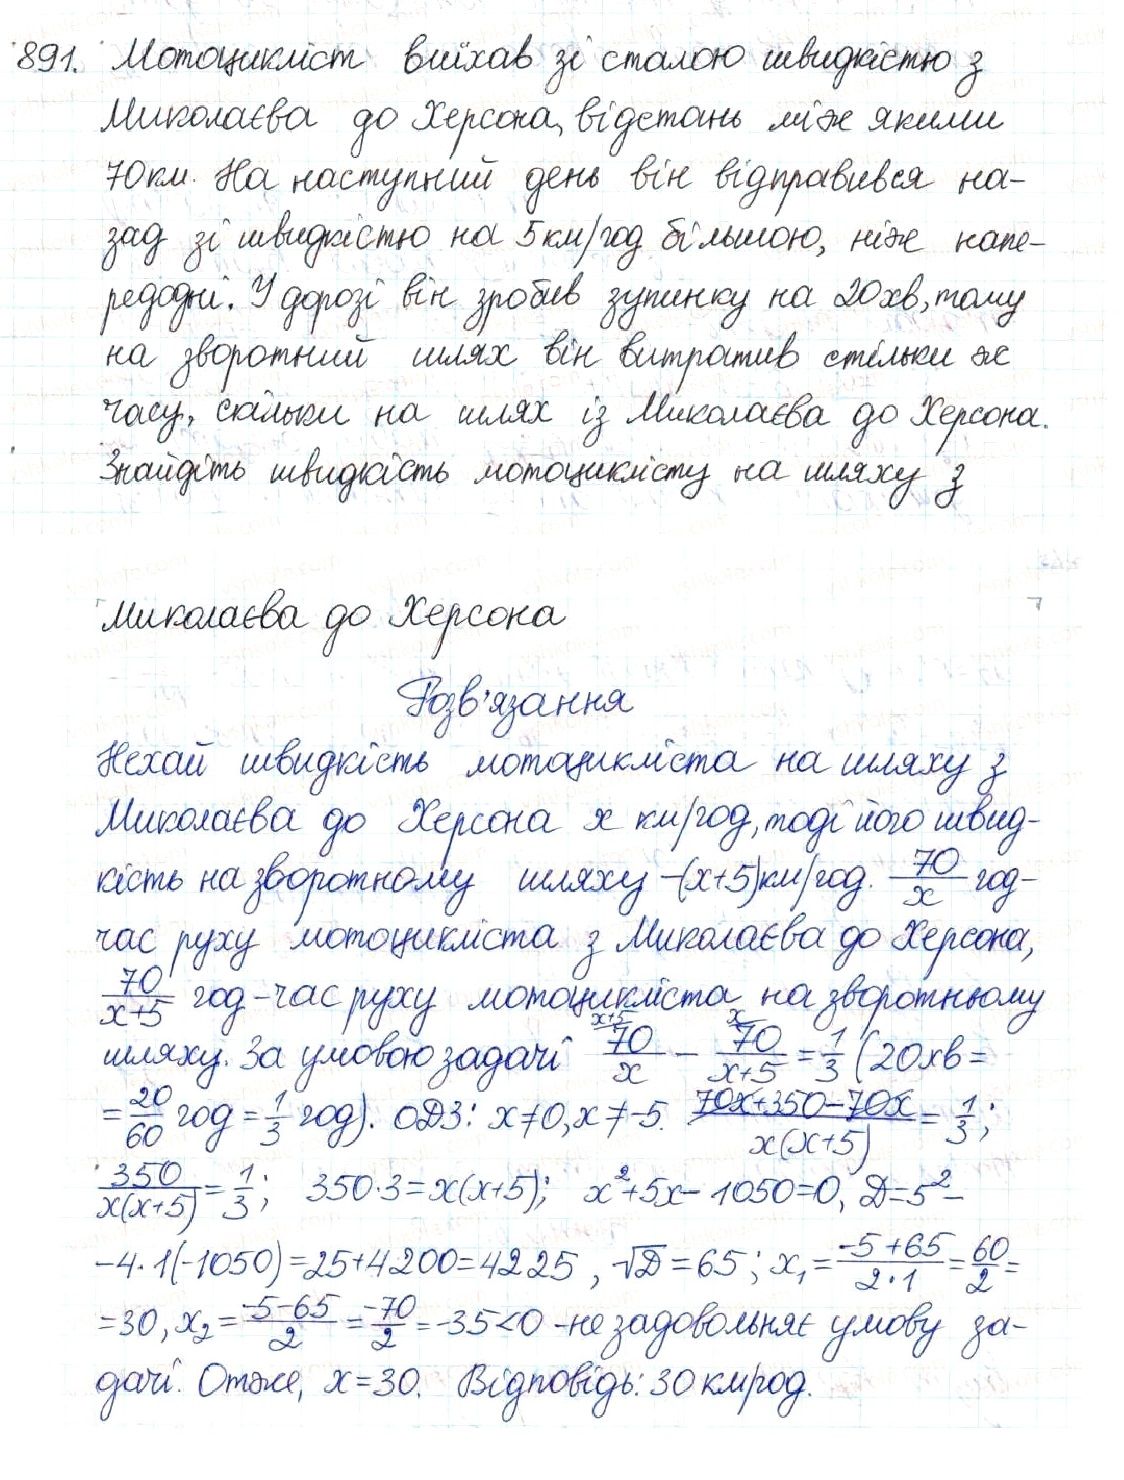 891. Мотоцикліст виїхав зі сталою швидкістю з
Миколаєва до Херсона, відстань між якими
70 км. На наступний день він відправився на-
зад зі швидкістю на 5 км/год більшою, ніж напе-
редодні. У дорозі він зробив зупинку на 20 хв, тому
на зворотний шлях він витратив стільки ж
часу, скільки на шлях із Миколаєва до Херсона.
Знайдіть швидкість мотоциклісту на шляху з
Миколаєва до Херсона
Розв'язання
Нехай швидкість мотоцикліста на шляху з
Миколаєва до Херсона x км/год, тоді його швид-
кість на зворотному шляху -(x+5) км/год. 70/x год-
час руху мотоцикліста з Миколаєва до Херсона,
70/(x+5) год-час руху мотоцикліста на зворотньому
шляху. За умовою задачі 70/x (x+5) - 70/(x+5) (x) = 1/3 (20хв =
= 20/60 год = 1/3 год). ОДЗ: x≠0, x≠-5. (70x+350-70x)/(x(x+5)) = 1/3;
350/(x(x+5)) = 1/3; 350·3=x(x+5); x²+5x-1050=0, D=5²-
-4·1(-1050)=25+4200=4225, √D=65; x₁=(-5+65)/(2·1)=60/2=
=30, x₂=(-5-65)/2=-70/2=-35<0 -не задовольняє умову за-
дачі. Отже, x=30. Відповідь: 30 км/год.